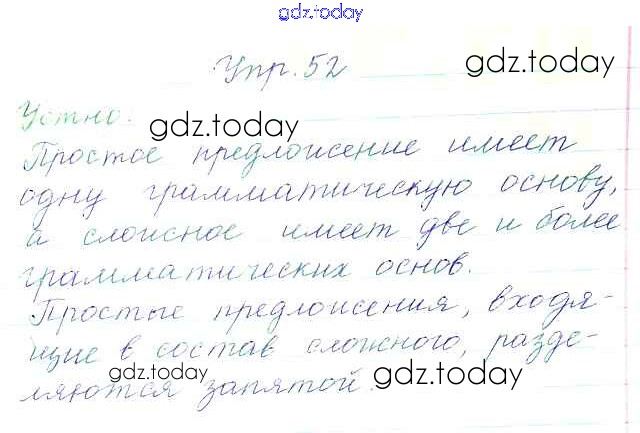 gdz.today
Упр. 52
gdz.today
Устно.
gdz.today
Простое предложение имеет
одну грамматическую основу,
а сложное имеет две и более
грамматических основ.
Простые предложения, входя-
щие в состав сложного, разде-
ляются запятой.
gdz.today